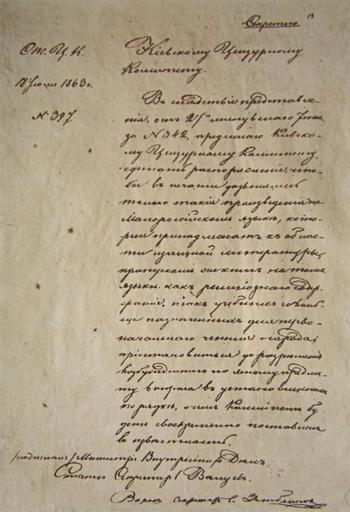 Секретно
От. Ц. К.
18 Іюля 1863 г.
№ 397
Кіевскому Цензурному
Комитету.
Въ слѣдствіе представле-
нія, отъ 27го минувшаго Іюня
за № 342, предлагаю Кіевско-
му Цензурному Комитету,
сдѣлать распоряженіе, что-
бы въ печати дозволялись
только такія произведенія на
Малороссійскомъ языкѣ, кото-
рыя принадлежатъ къ облас-
ти изящной литературы;
пропускомъ же книгъ на томъ
языкѣ, какъ религіознаго содер-
жанія, такъ учебныхъ и вооб-
ще назначенныхъ для перво-
начальнаго чтенія народа,
пріостановиться до разрѣшенія
возбужденнаго по этому предме-
ту вопроса въ установленномъ
порядкѣ, о чемъ Комитетъ бу-
детъ своевременно поставленъ
въ извѣстность.
/подписалъ/ Министръ Внутреннихъ Дѣлъ,
Статсъ Секретарь Валуевъ.
Вѣрно: Секретарь